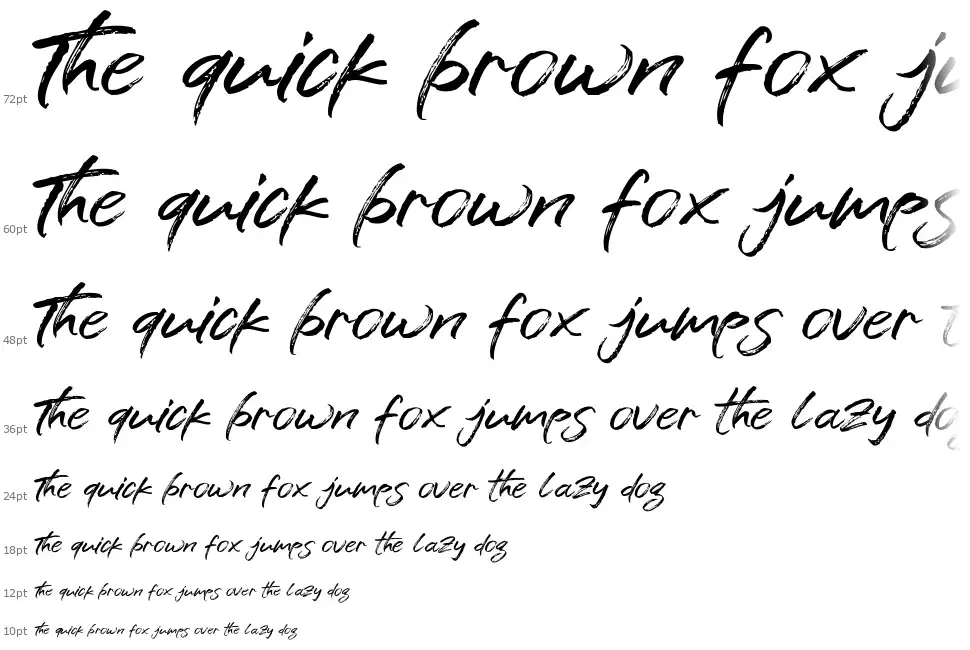 72pt The quick brown fox ju
60pt The quick brown fox jumps
48pt The quick brown fox jumps over t
36pt The quick brown fox jumps over the lazy do
24pt The quick brown fox jumps over the lazy dog
18pt The quick brown fox jumps over the lazy dog
12pt The quick brown fox jumps over the lazy dog
10pt The quick brown fox jumps over the lazy dog